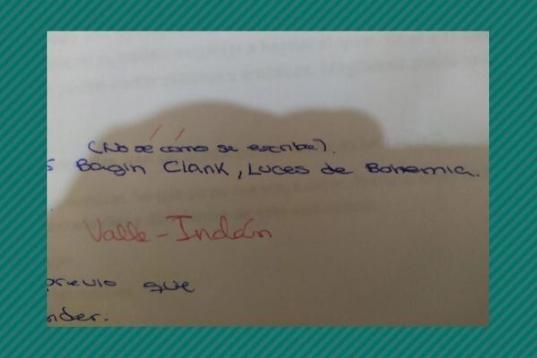 (No sé cómo se escribe).
s Bagin Clank, Luces de Bohemia.
Valle-Inclán
previo que
nder.